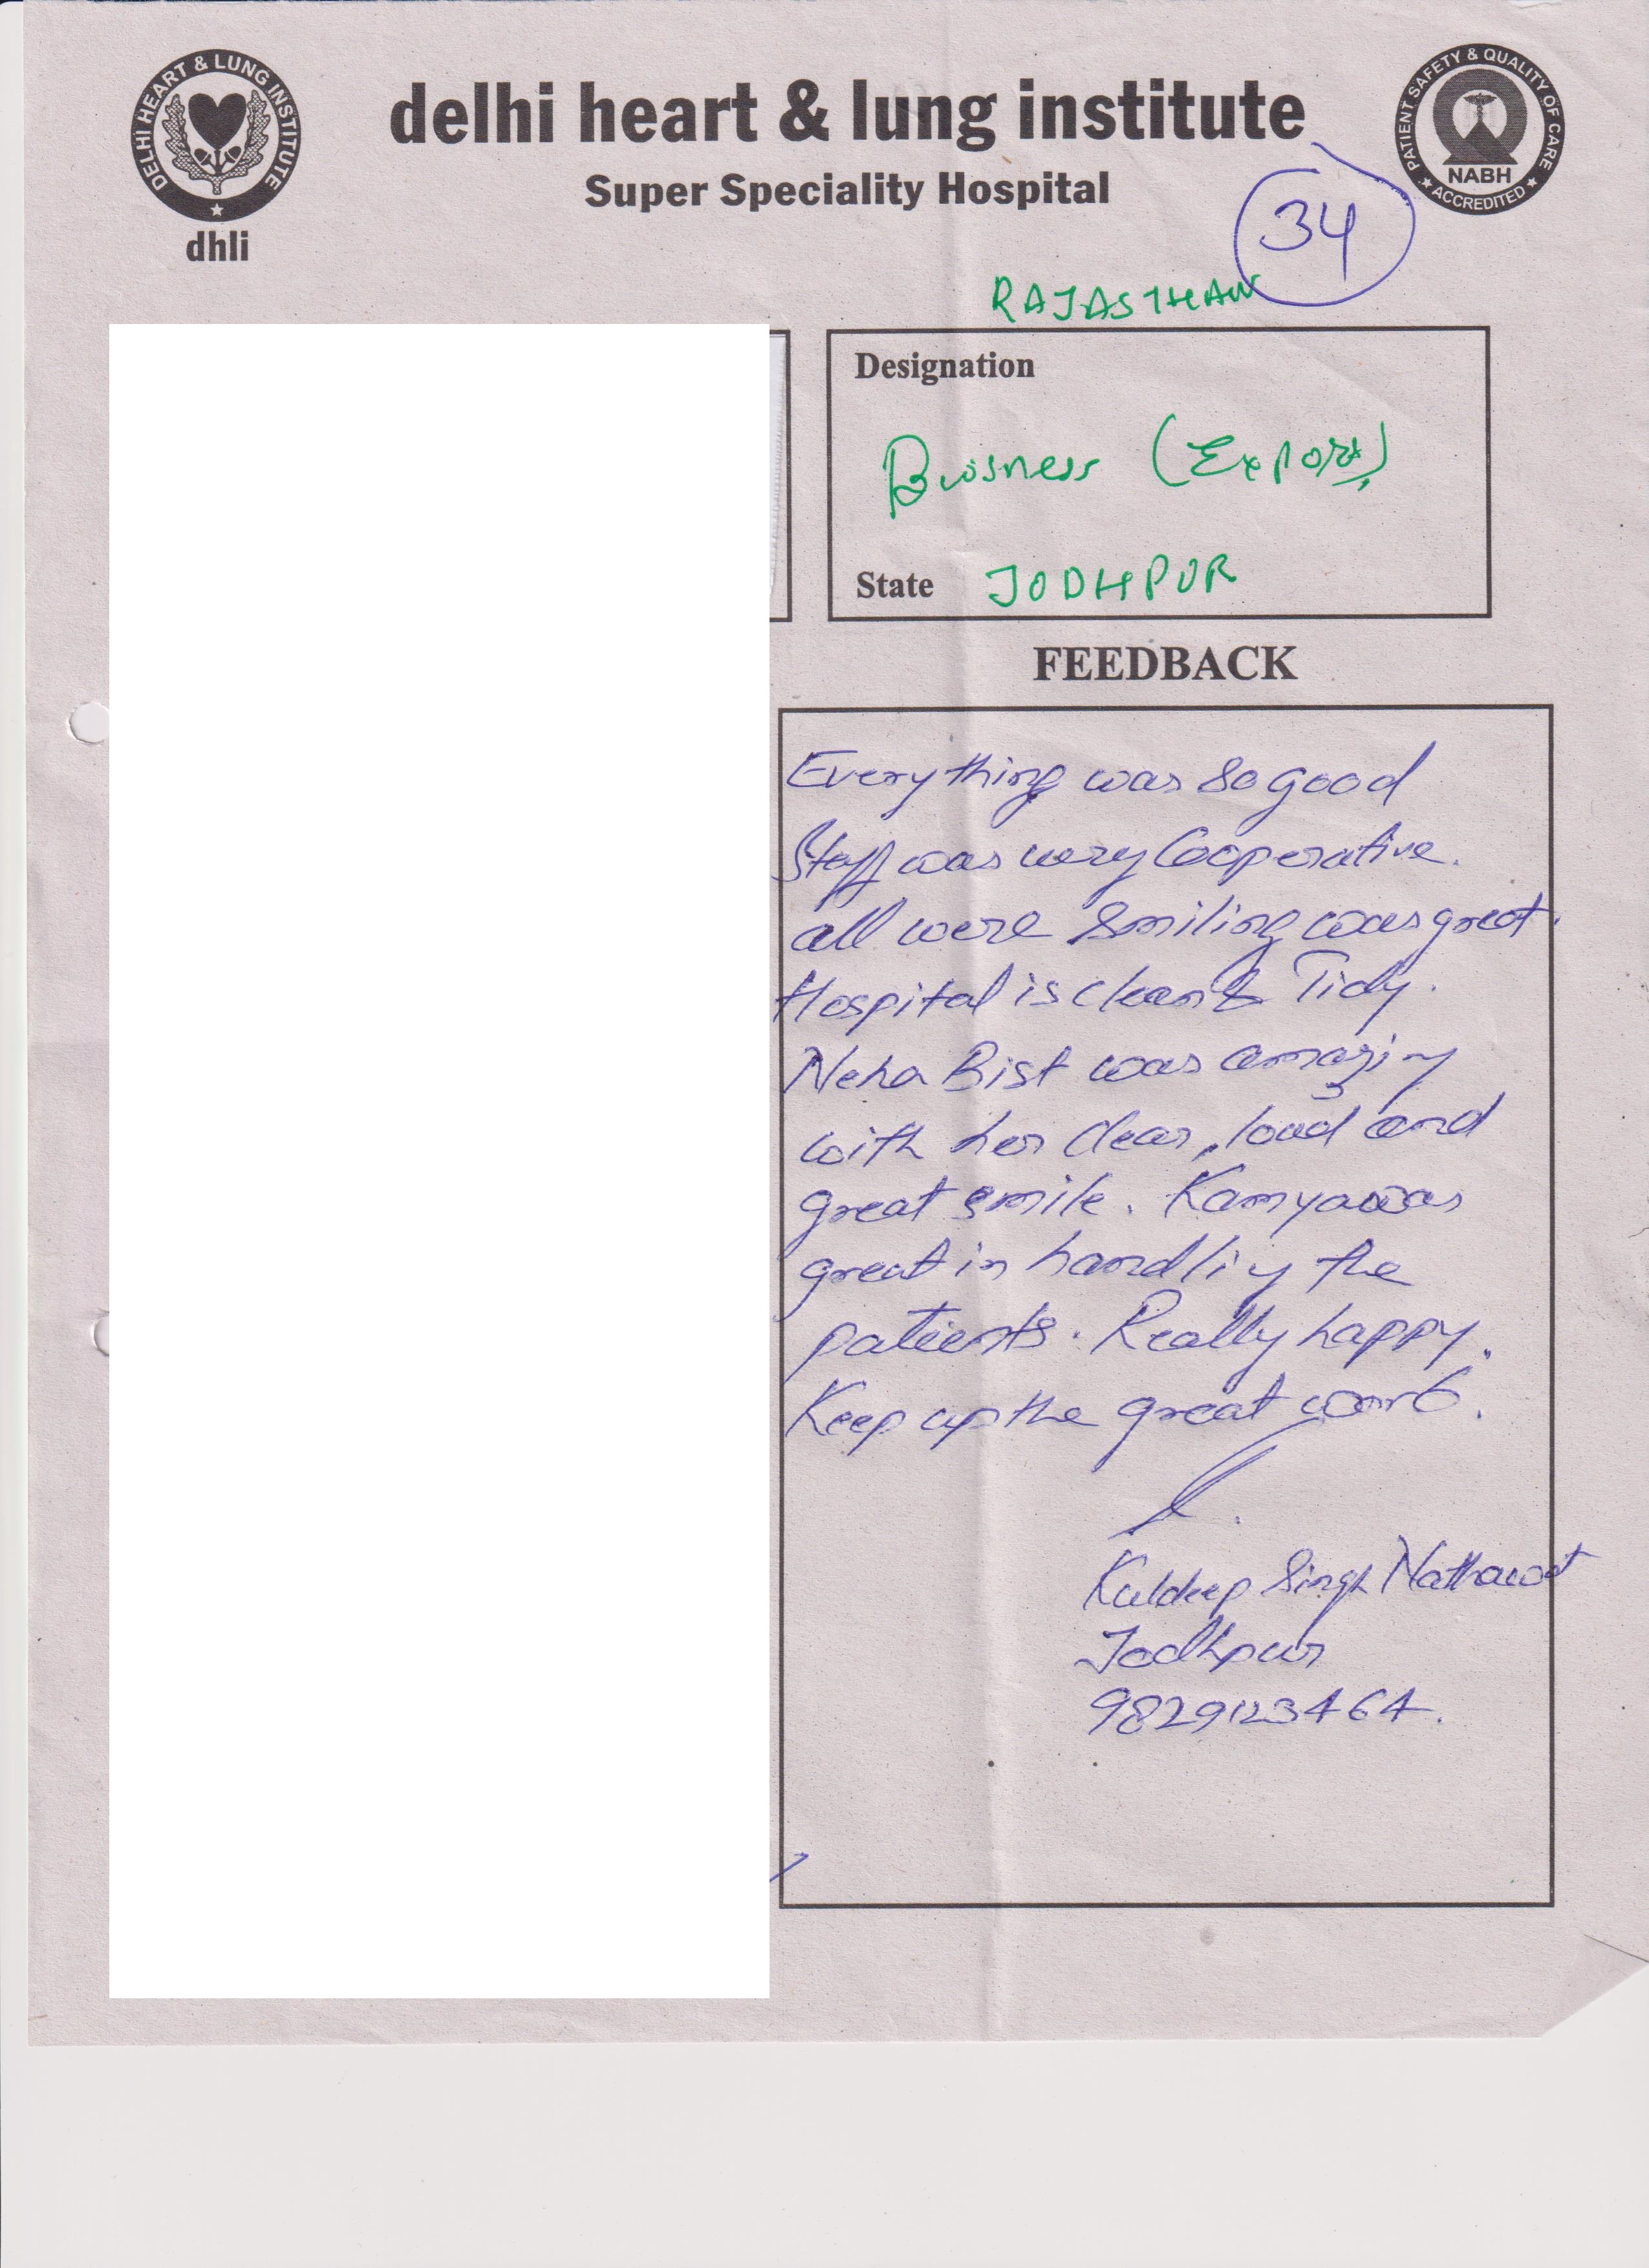 DELHI HEART & LUNG INSTITUTE
dhli
delhi heart & lung institute
Super Speciality Hospital
PATIENT SAFETY & QUALITY OF CARE
NABH
ACCREDITED
34
RAJASTHAN
Designation
Buisness (Export)
State JODHPUR
FEEDBACK
Everything was so good
Staff was very Cooperative.
all were smiling was great.
Hospital is clean & Tidy.
Neha Bist was amazing
with her clear, loud and
great smile. Kamya was
great in handling the
patients. Really happy.
Keep up the great work.
Kuldeep Singh Nathawat
Jodhpur
9829123464.